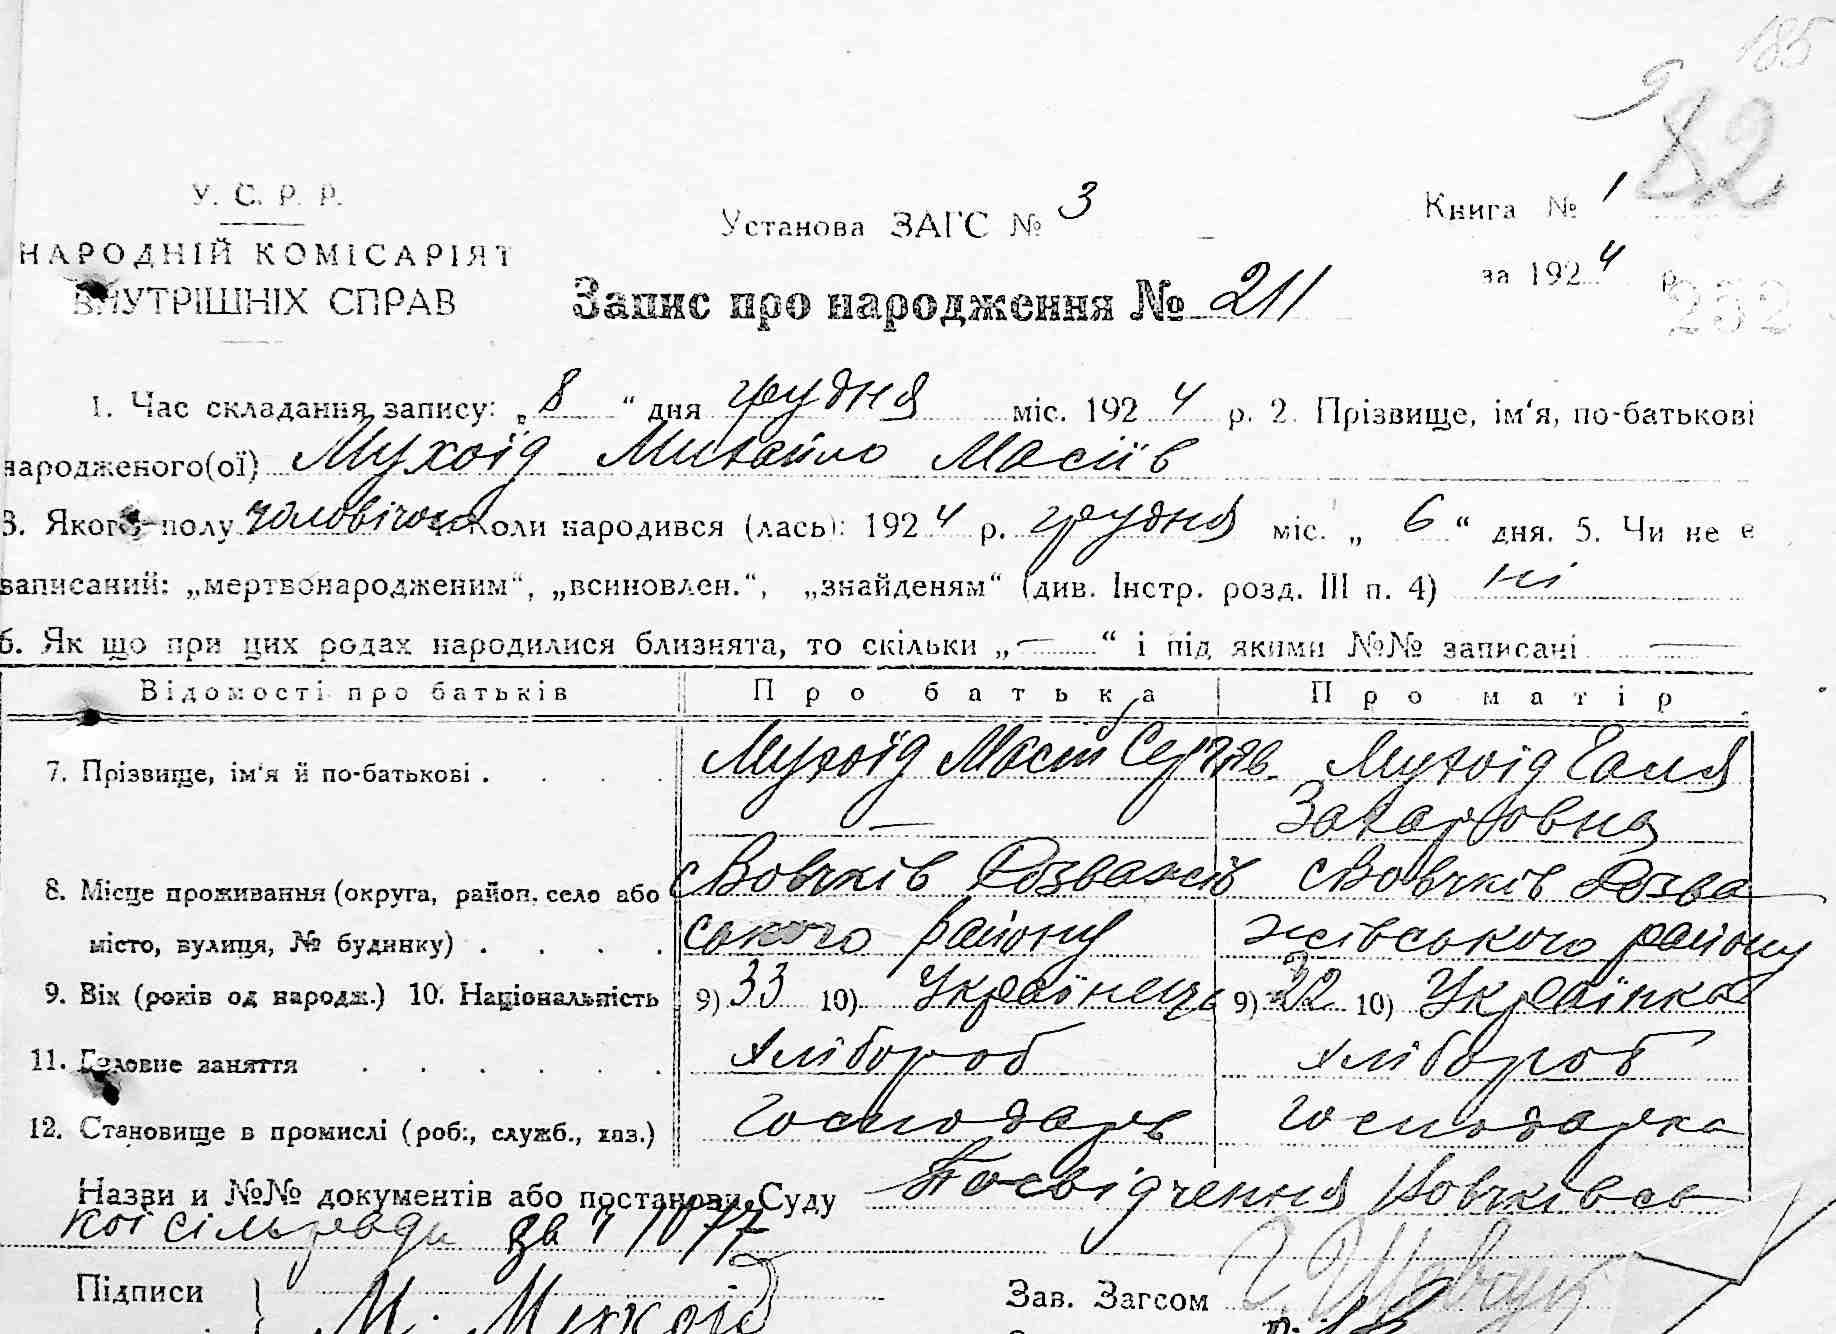 185
9
82
У. С. Р. Р.
Установа ЗАГС № 3
Книга № 1
НАРОДНІЙ КОМІСАРІЯТ
ВНУТРІШНІХ СПРАВ
за 1924 р.
Запис про народження № 211
232
1. Час складання запису: „8“ дня грудня міс. 1924 р. 2. Прізвище, ім‘я, по-батькові
народженого(ої) Мухоїд Михайло Масіїв
3. Якого полу чоловічого Коли народився (лась): 1924 р. грудня міс. „6“ дня. 5. Чи не є
записаний: „мертвонародженим“, „всиновлен.“, „знайденям“ (див. Інстр. розд. III п. 4) ні
6. Як що при цих родах народилися близнята, то скільки „—“ і під якими №№ записані —
Відомості про батьків Про батька Про матір
7. Прізвище, ім‘я й по-батькові . . . . Мухоїд Масій Сергіїв. Мухоїд Ганя
— Захарковна
8. Місце проживання (округа, район, село або с Вовчків Розважів с Вовчків Розва
місто, вулиця, № будинку) . . . . ського району жівського району
9. Вік (років од народж.) 10. Національність 9) 33 10) Українець 9) 32 10) Українка
11. Головне заняття . . . . . . хлібороб хлібороб
12. Становище в промислі (роб., служб., хаз.) господарь господарка
Назви и №№ документів або постанови Суду Посвідчення Вовчківсь
кої сільради за № 1077
Підписи М. Мухоїд Зав. Загсом